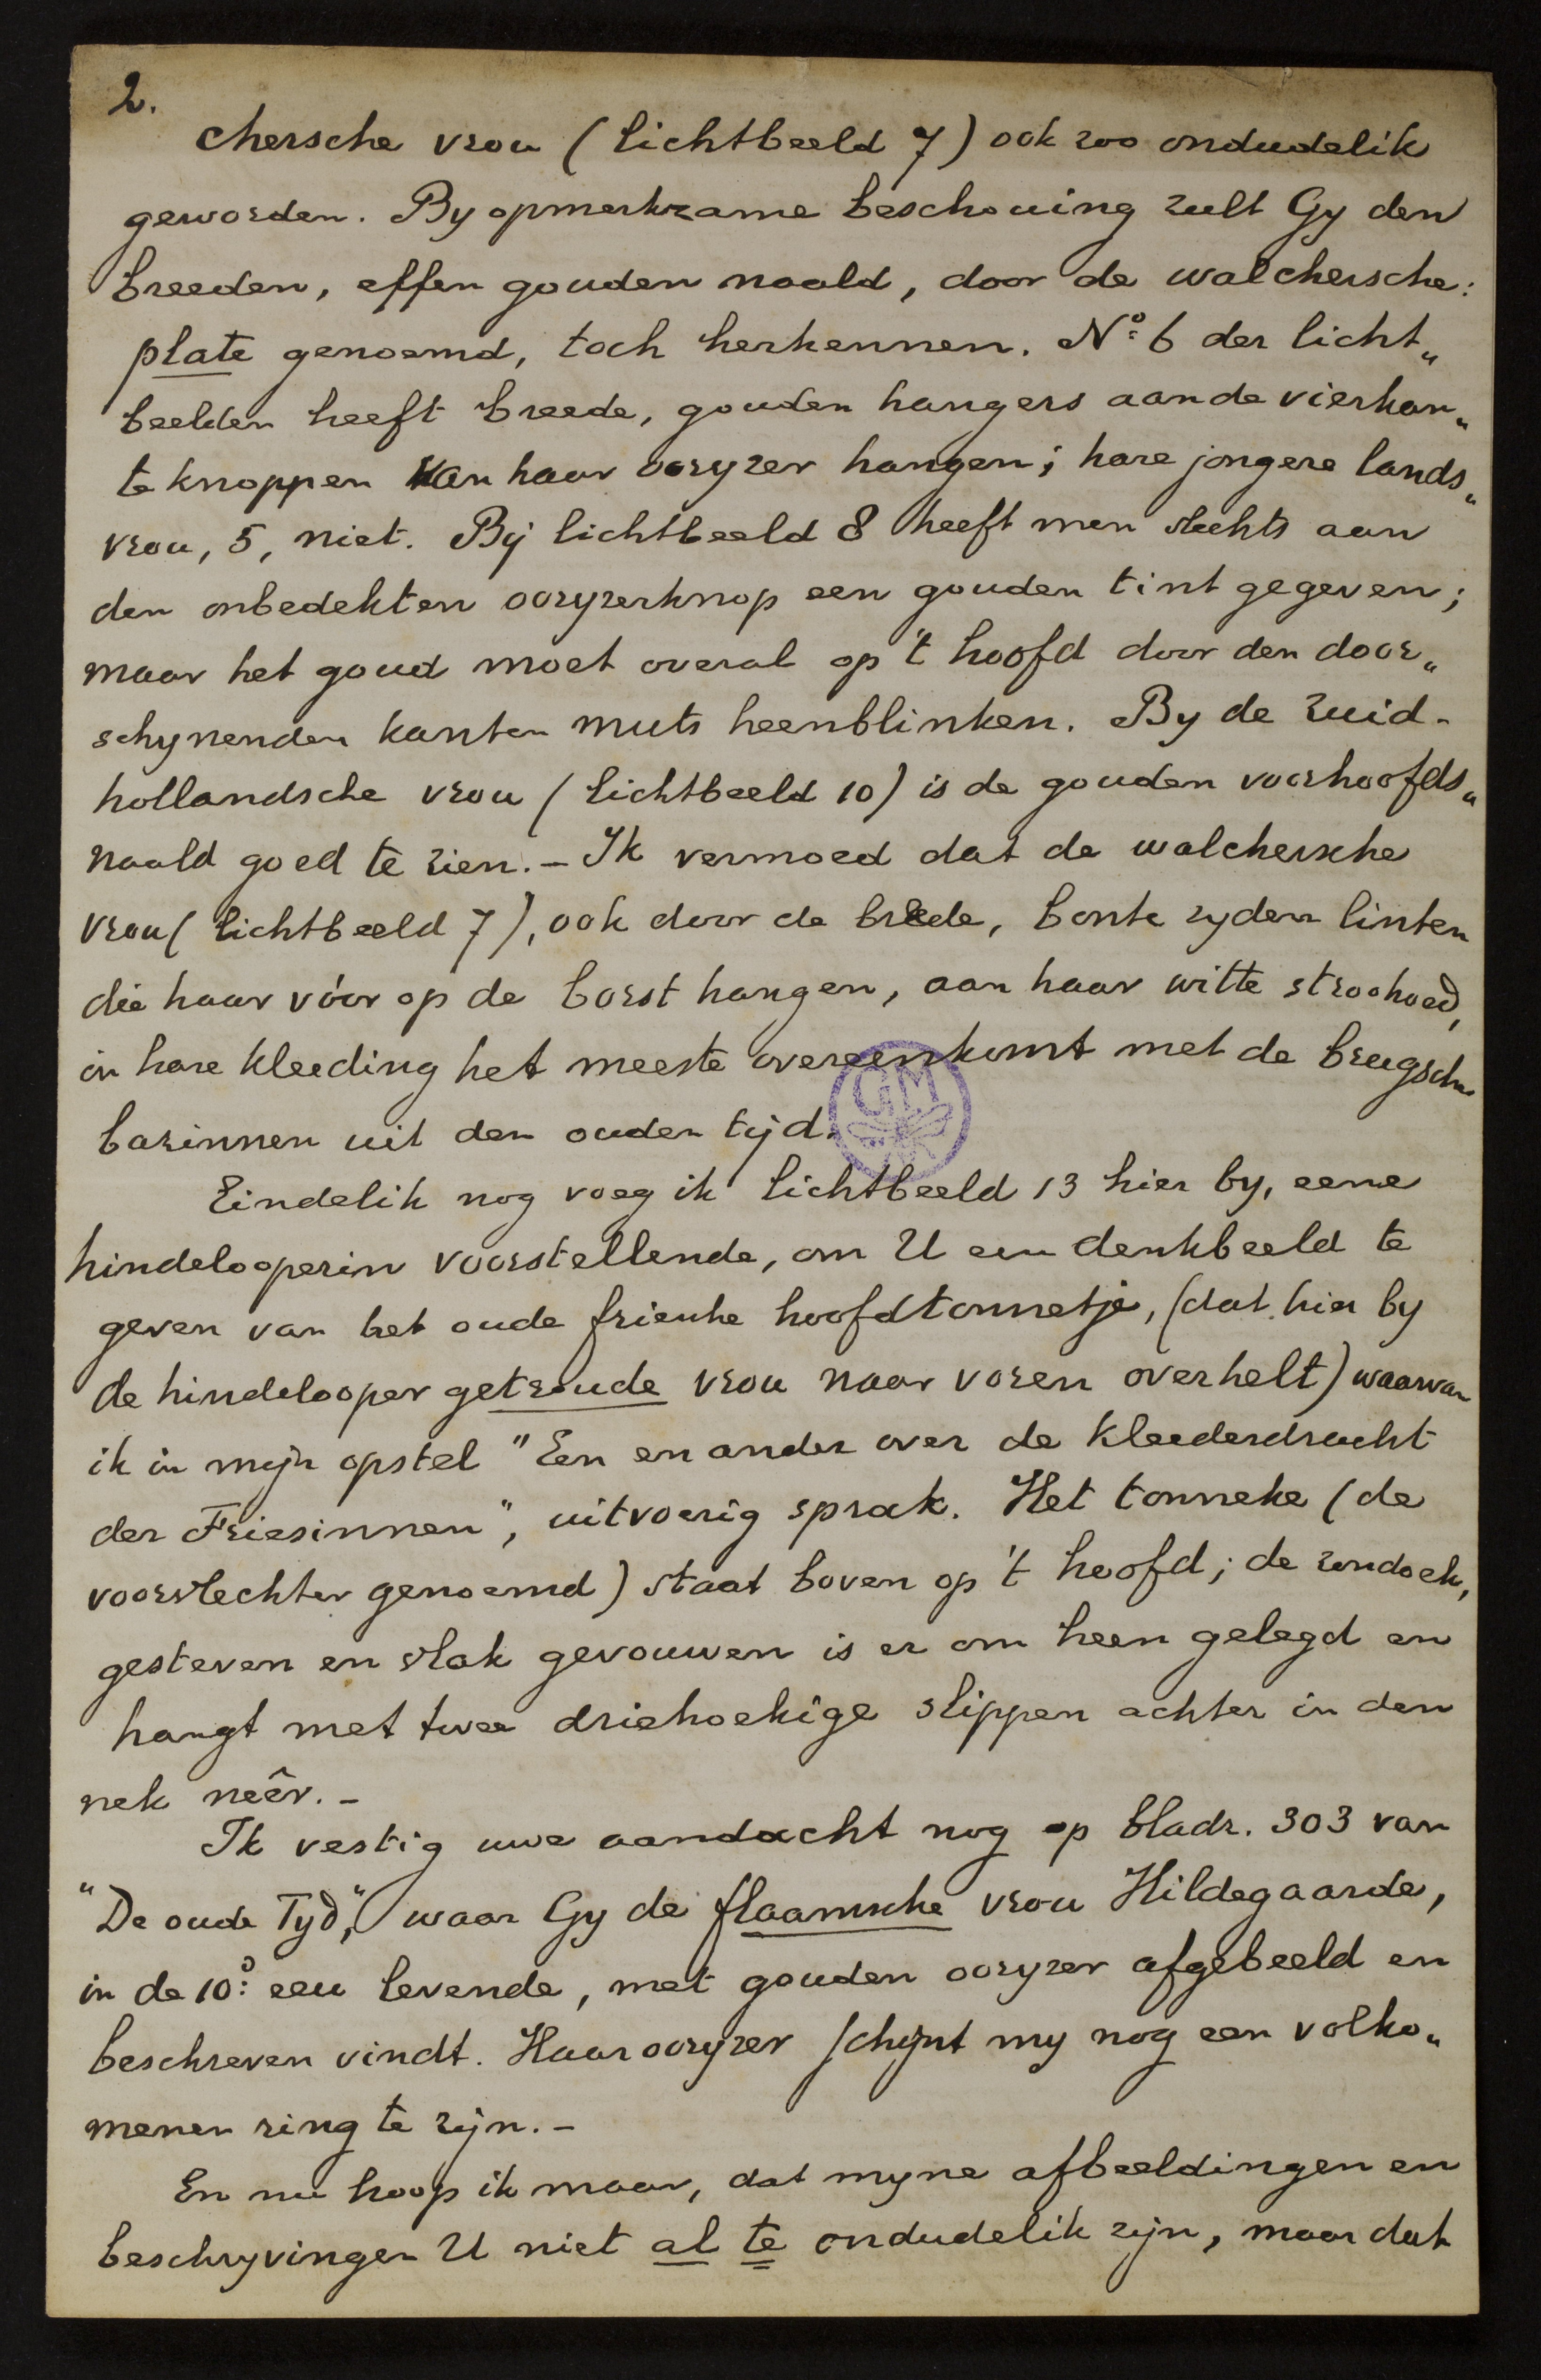 2.
chersche vrou (lichtbeeld 7) ook zoo ondudelik
geworden. By opmerkzame beschouing zult Gy den
breeden, effen gouden naald, door de walchersche:
plate genoemd, toch herkennen. No: 6 der licht„
beelden heeft breede, gouden hangers aan de vierkan„
te knoppen van haar ooryzer hangen; hare jongere lands„
vrou, 5, niet. Bij lichtbeeld 8 heeft men slechts aan
den onbedekten ooryzerknop een gouden tint gegeven;
maar het goud moet overal op 't hoofd door den door„
schynenden kanten muts heenblinken. By de zuid-
hollandsche vrou (lichtbeeld 10) is de gouden voorhoofds„
naald goed te zien. – Ik vermoed dat de walchersche
vrou (lichtbeeld 7), ook door de breede, bonte zyden linten
die haar vóor op de borst hangen, aan haar witte stroohoed,
in hare kleeding het meeste overeenkomt met de brugsche
bazinnen uit den ouden tijd.
GM
Eindelik nog voeg ik lichtbeeld 13 hier by, eene
hindelooperin voorstellende, om U een denkbeeld te
geven van het oude friesche hoofdtonnetje, (dat hier by
de hindelooper getroude vrou naar voren overhelt) waarvan
ik in mijn opstel "Een en ander over de kleederdracht
der Friesinnen", uitvoerig sprak. Het tonneke (de
voorvlechter genoemd) staat boven op 't hoofd; de zondoek,
gesteven en vlak gevouwen is er om heen gelegd en
hangt met twee driehoekige slippen achter in den
nek neêr. –
Ik vestig uwe aandacht nog op bladz. 303 van
"De oude Tyd", waar Gy de flaamsche vrou Hildegaarde,
in de 10e: eeu levende, met gouden ooryzer afgebeeld en
beschreven vindt. Haar ooryzer schijnt my nog een volko„
menen ring te zijn. –
En nu hoop ik maar, dat myne afbeeldingen en
beschryvingen U niet al te ondudelik zijn, maar dat